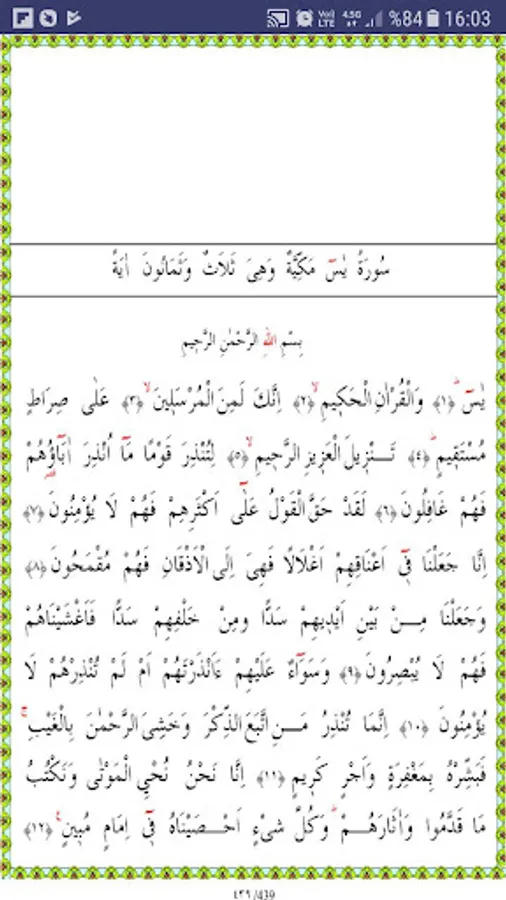 Voll LTE 4.5G %84 16:03
سُورَةُ يٰسٓ مَكِّيَّةٌ وَهِىَ ثَلَاثٌ وَثَمَانُونَ اٰيَةً
بِسْمِ اللهِ الرَّحْمٰنِ الرَّحٖيمِ
يٰسٓ ﴿١﴾ وَالْقُرْاٰنِ الْحَكٖيمِ ﴿٢﴾ اِنَّكَ لَمِنَ الْمُرْسَلٖينَ ﴿٣﴾ عَلٰى صِرَاطٍ
مُسْتَقٖيمٍ ﴿٤﴾ تَنْزٖيلَ الْعَزٖيزِ الرَّحٖيمِ ﴿٥﴾ لِتُنْذِرَ قَوْمًا مَٓا اُنْذِرَ اٰبَٓاؤُهُمْ
فَهُمْ غَافِلُونَ ﴿٦﴾ لَقَدْ حَقَّ الْقَوْلُ عَلٰٓى اَكْثَرِهِمْ فَهُمْ لَا يُؤْمِنُونَ ﴿٧﴾
اِنَّا جَعَلْنَا فٖٓى اَعْنَاقِهِمْ اَغْلَالًا فَهِىَ اِلَى الْاَذْقَانِ فَهُمْ مُقْمَحُونَ ﴿٨﴾
وَجَعَلْنَا مِنْ بَيْنِ اَيْدٖيهِمْ سَدًّا وَمِنْ خَلْفِهِمْ سَدًّا فَاَغْشَيْنَاهُمْ
فَهُمْ لَا يُبْصِرُونَ ﴿٩﴾ وَسَوَٓاءٌ عَلَيْهِمْ ءَاَنْذَرْتَهُمْ اَمْ لَمْ تُنْذِرْهُمْ لَا
يُؤْمِنُونَ ﴿١٠﴾ اِنَّمَا تُنْذِرُ مَنِ اتَّبَعَ الذِّكْرَ وَخَشِىَ الرَّحْمٰنَ بِالْغَيْبِ
فَبَشِّرْهُ بِمَغْفِرَةٍ وَاَجْرٍ كَرٖيمٍ ﴿١١﴾ اِنَّا نَحْنُ نُحْيِ الْمَوْتٰى وَنَكْتُبُ
مَا قَدَّمُوا وَاٰثَارَهُمْ وَكُلَّ شَىْءٍ اَحْصَيْنَاهُ فٖٓى اِمَامٍ مُبٖينٍ ﴿١٢﴾
٤٣٩/439